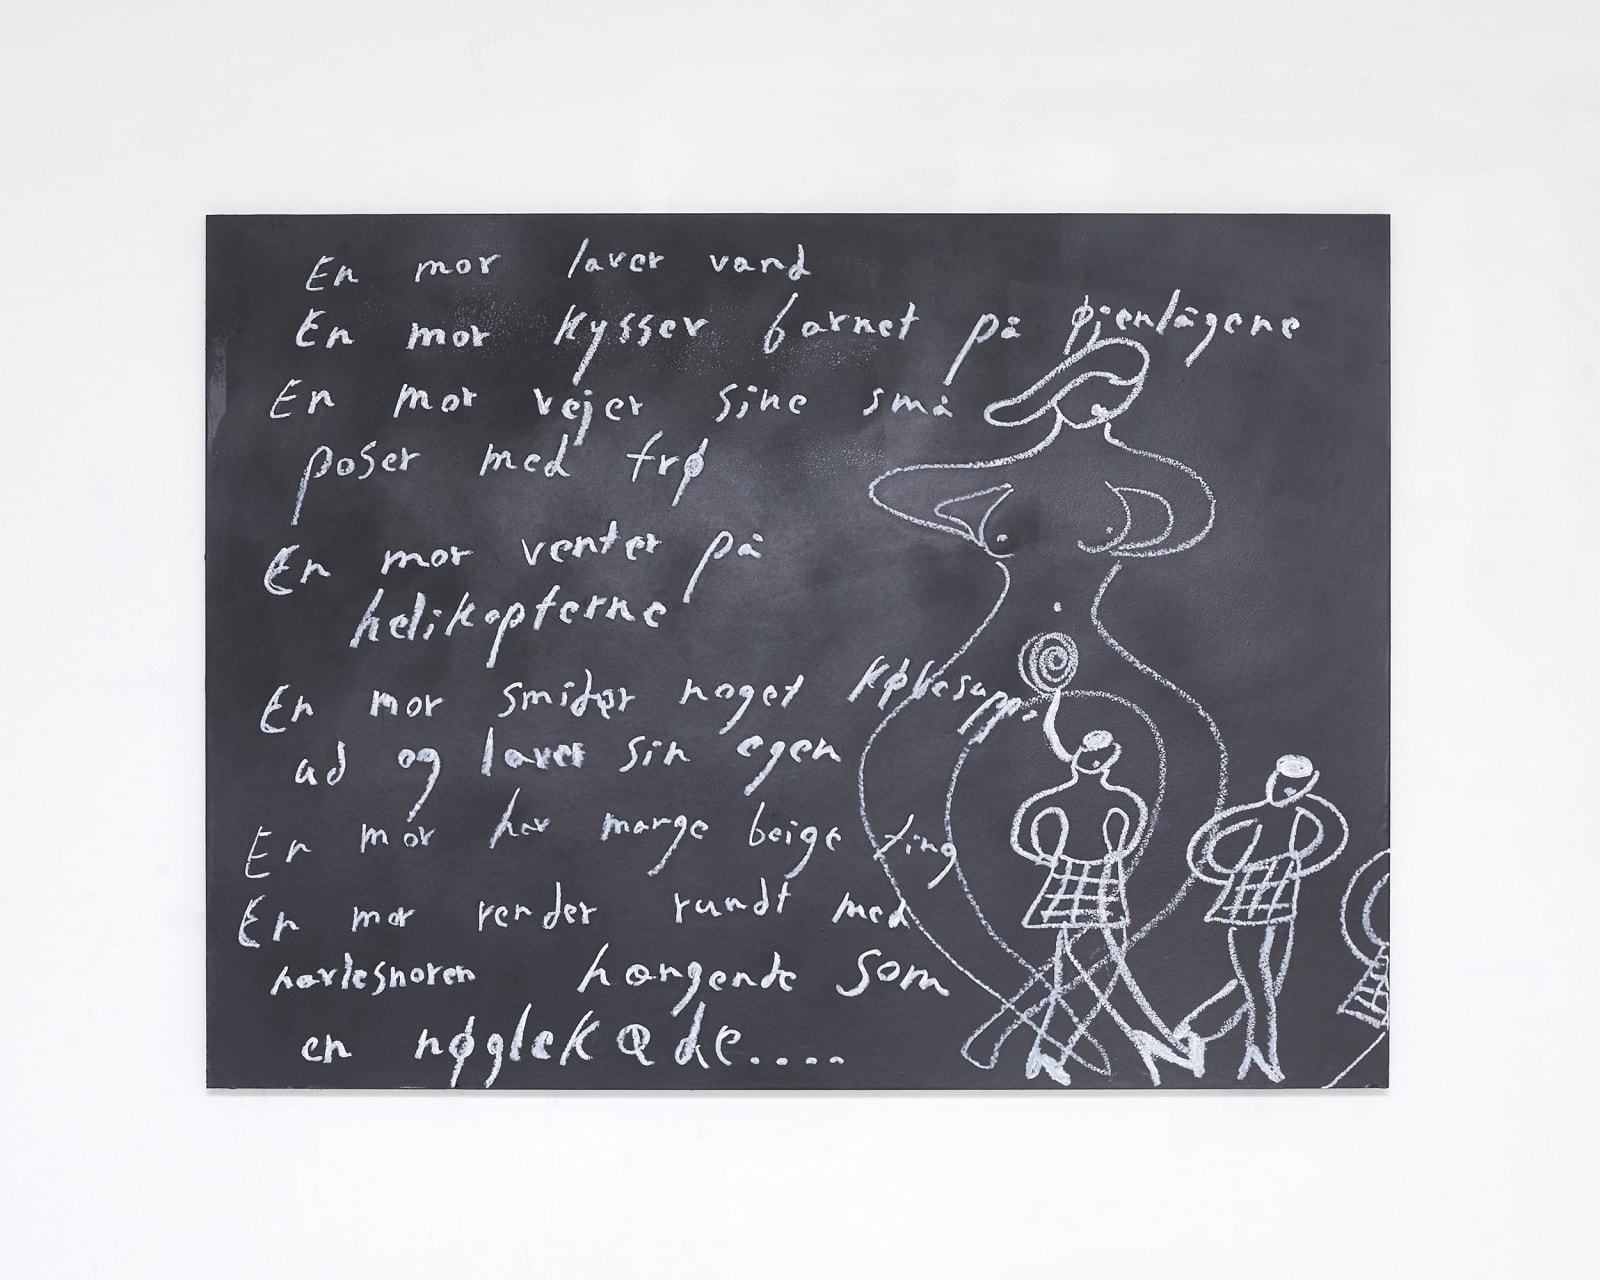 En mor laver vand
En mor kysser barnet på øjenlågene
En mor vejer sine små
poser med frø
En mor venter på
helikopterne
En mor smider noget købesuppe
ud og laver sin egen
En mor har mange beige ting
En mor render rundt med
navlesnoren hængende som
en nøglekæde....